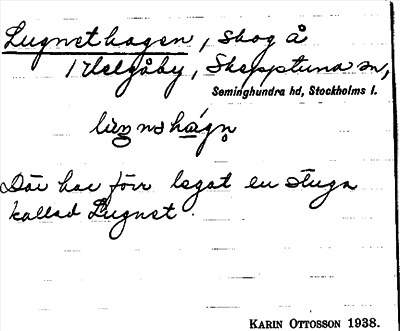 Lugnethagen, skog å
Helgåby, Skepptuna sn,
Seminghundra hd, Stockholms l.
Där har förr legat en stuga
kallad Lugnet.
KARIN OTTOSSON 1938.